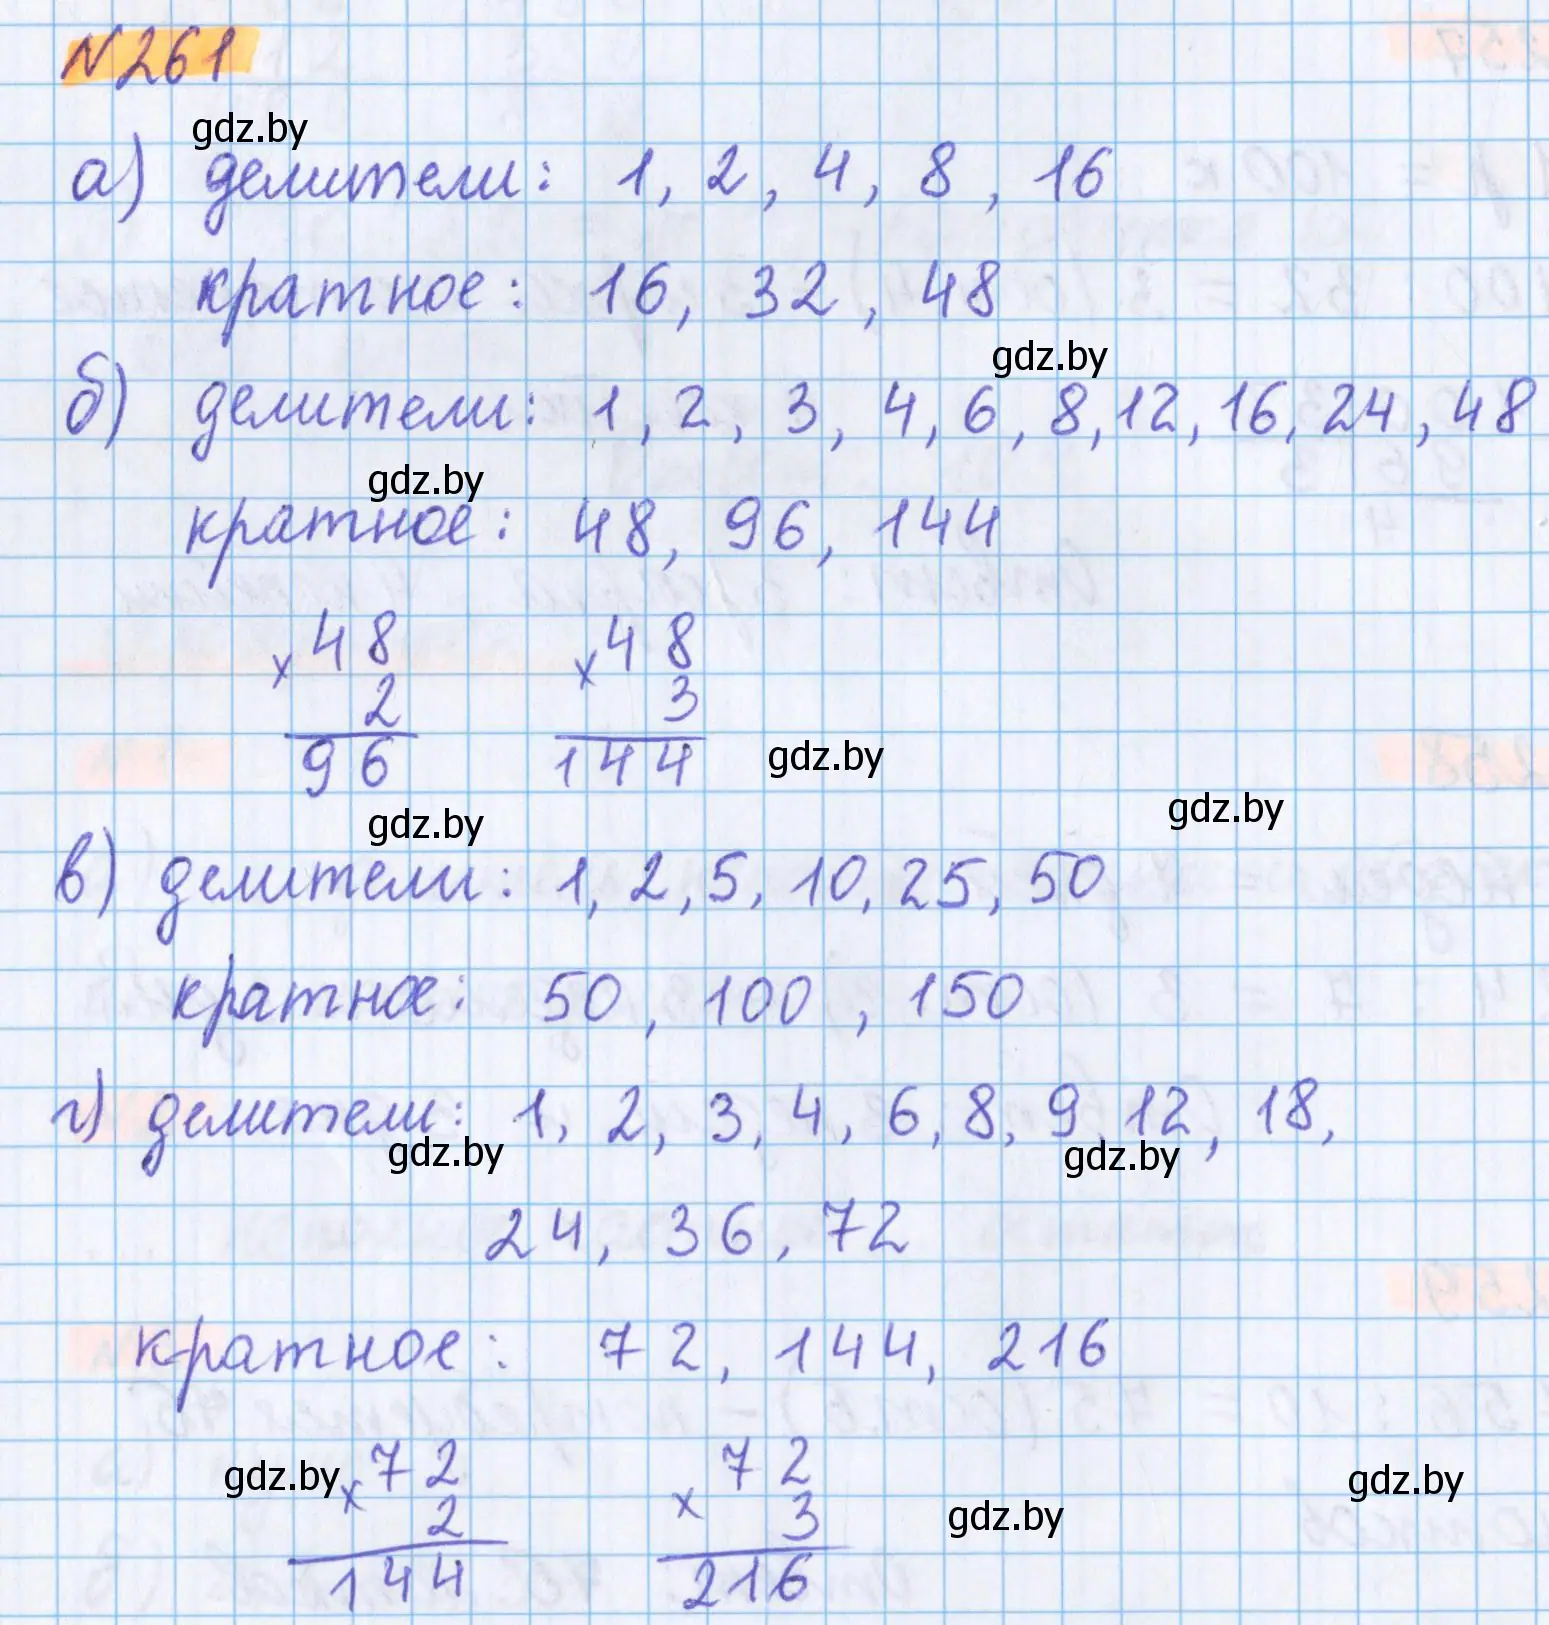 N261
gdz.by
а) делители: 1, 2, 4, 8, 16
кратное: 16, 32, 48
gdz.by
б) делители: 1, 2, 3, 4, 6, 8, 12, 16, 24, 48
gdz.by
кратное: 48, 96, 144
x 48 x 48
2 3
96 144
gdz.by
gdz.by
gdz.by
в) делители: 1, 2, 5, 10, 25, 50
кратное: 50, 100, 150
г) делители: 1, 2, 3, 4, 6, 8, 9, 12, 18,
gdz.by gdz.by
24, 36, 72
кратное: 72, 144, 216
gdz.by x 72 x 72 gdz.by
2 3 gdz.by
144 216